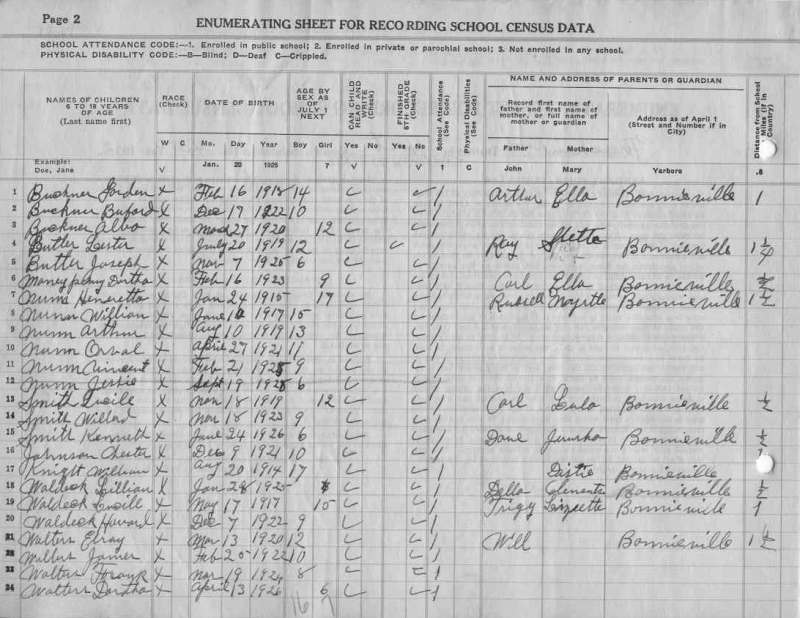 Page 2
ENUMERATING SHEET FOR RECORDING SCHOOL CENSUS DATA
SCHOOL ATTENDANCE CODE:—1. Enrolled in public school; 2. Enrolled in private or parochial school; 3. Not enrolled in any school.
PHYSICAL DISABILITY CODE:—B—Blind; D—Deaf C—Crippled.
NAMES OF CHILDREN 6 TO 18 YEARS OF AGE (Last name first)
RACE (Check)
DATE OF BIRTH
AGE BY SEX AS OF JULY 1 NEXT
CAN CHILD READ AND WRITE (Check)
FINISHED 8TH GRADE (Check)
School Attendance (See Code)
Physical Disabilities (See Code)
NAME AND ADDRESS OF PARENTS OR GUARDIAN
Record first name of father and first name of mother, or full name of mother or guardian
Address as of April 1 (Street and Number if in City)
Distance from School Miles (if in Country)
W C Mo. Day Year Boy Girl Yes No Yes No Father Mother
Example: Doe, Jane V Jan. 20 1925 7 V V 1 C John Mary Yarboro .8
1 Buckner Gorden x Feb 16 1918 14 1 Arthur Ella Bonnieville 1
2 Buckner Buford x Dec 17 1922 10 1
3 Buckner x 27 1920 12 1
4 Butler Lester x July 20 1919 12 1 Ray Bonnieville 1 1/4
5 Butler Joseph x Nov 7 1925 6 1
6 x Feb 16 1923 9 1 Carl Ella Bonnieville
7 Nunn Henretta x Jan 24 1915 17 1 Russell Myrtle Bonnieville 1 1/2
8 Nunn William x June 1917 15 1
9 Nunn Arthur x Aug 10 1919 13 1
10 Nunn Orval x April 27 1921 11 1
11 Nunn Vincent x Feb 21 9 1
12 Nunn Jessie x Sept 19 6 1
13 Smith Lucile x Nov 18 1919 12 1 Carl Bonnieville 1/2
14 Smith Willard x Nov 18 1923 9 1
15 Smith Kenneth x June 24 1926 6 1 Bonnieville 1/2
16 Johnson Chester x Dec 9 1921 10 1
17 Knight William x Aug 20 1914 17 1 Bonnieville
18 Waldeck Lillian x Jan 28 1 Della Bonnieville 1/2
19 Waldeck Lucille x May 17 1917 15 1 Bonnieville 1
20 Waldeck Howard x Dec 7 1922 9 1
21 Walters Elray x Mar 13 1920 12 1 Will Bonnieville 1 1/2
22 James x Feb 20 1922 10 1
23 Walters Frank x Mar 19 1924 8 1
24 Walters x April 13 1926 6 1
16 7